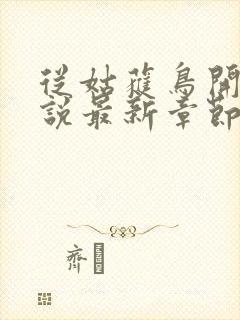 從姑獲鳥開
說最新章節
齊